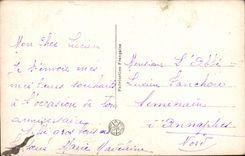 Mon Cher Lucien
Je t'envoie mes
meilleurs souhaits
à l'occasion de ton
anniversaire
gros baisers
Marie Madeleine
Fabrication Française
Monsieur l'Abbé
Lucien
Séminaire
d'Annappes
Nord